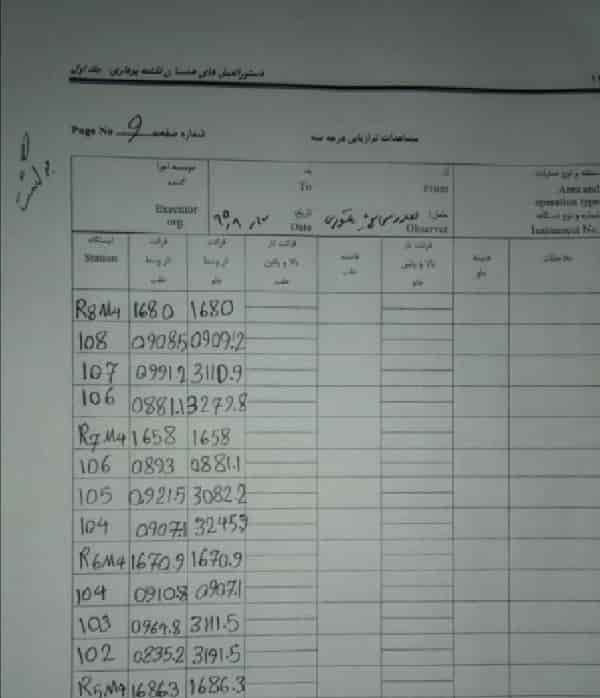 دستورالعمل های همسان نقشه برداری جلد اول
برگشت
Page No 9 شماره صفحه
مشاهدات ترازیابی درجه سه
موسسه اجرا کننده
Executor org.
به
To
تاریخ
Date
از
From
عامل
Observer
منطقه و نوع عملیات
Area and operation type
شماره و نوع دستگاه
Instrument No.
ایستگاه
Station
قرائت تار وسط عقب
قرائت تار وسط جلو
قرائت تار بالا و پائین عقب
فاصله عقب
قرائت تار بالا و پائین جلو
فاصله جلو
ملاحظات
R8M4 1680 1680
108 0908.5 0909.2
107 0991.2 3110.9
106 0881.1 3279.8
R7M4 1658 1658
106 0893 0881.1
105 0921.5 3082.2
104 0907.1 3245.9
R6M4 1670.9 1670.9
104 0910.8 0907.1
103 0964.8 3111.5
102 0835.2 3191.5
R5M4 1686.3 1686.3